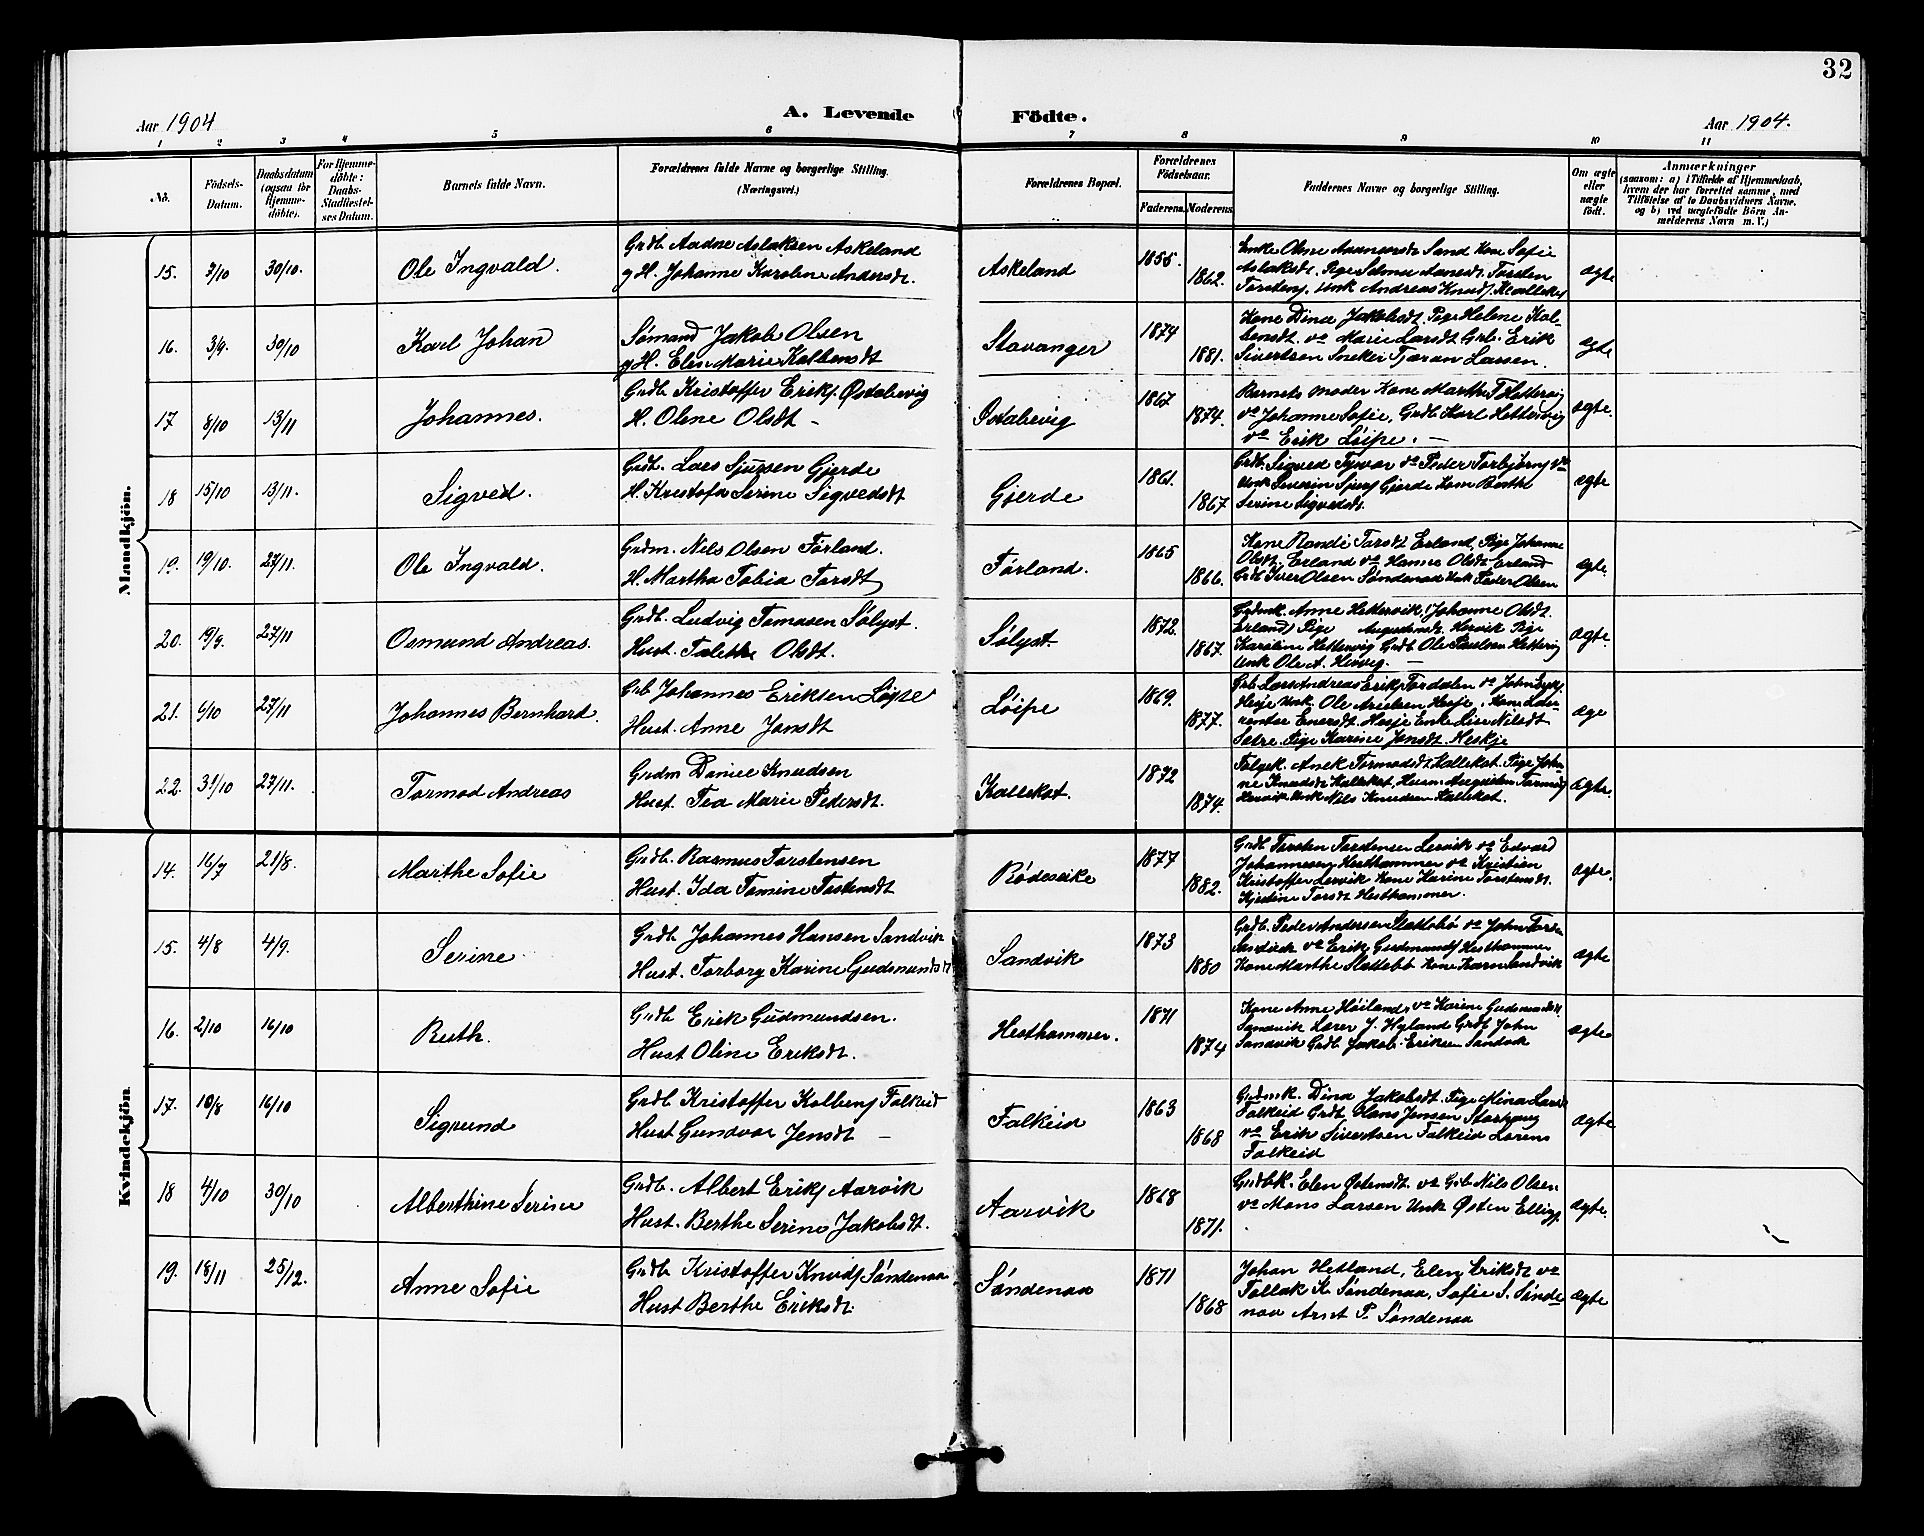 32
Aar 1904
A. Levende Födte.
Aar 1904.
1 2 3 4 5 6 7 8 9 10 11
No.
Födsels-Datum.
Daabsdatum (ogsaa for Hjemme-döbte).
For Hjemme-döbte: Daabs-Stadfæstel-ses Datum.
Barnets fulde Navn.
Forældrenes fulde Navne og borgerlige Stilling. (Næringsvei.)
Forældrenes Bopæl.
Forældrenes Födselsaar.
Faderens. Moderens.
Faddernes Navne og borgerlige Stilling.
Om ægte eller uægte födt.
Anmærkninger
(saasom: a) i Tilfælde af Hjemmedaab,
hvem der har forrettet samme, med
Tilföielse af to Daabsvidners Navne.
og b) ved uægtefödte Börn An-
melderens Navn m. V.)
Mandkjön.
15. 7/10 30/10. Ole Ingvald.
Grdb. Aadne Aslaksen Askeland
g H. Johanne Karoline Andersdt.
Askeland 1855. 1862.
Enke Olene Sand Kone Sofie
Aslaksdt. Pige Selma Torsten
Andreas
ægte
16. 3/9. 30/10 Karl Johan
Sømand Jakob Olsen
g H. Eles Marie Kolbensdt
Stavanger 1874 1881.
Kone Dina Jakobsdt. Pige Helene Kol-
bensdt. vo Marie Larsdt Grb. Erik
Sivertsen Sneker Tjeran Lassen.
ægte
17 8/10 13/11 Johannes.
Grdb Kristoffer Eriks. Østabøvig
H. Olene Olsdt -
Østabøvig 1867 1874.
Barnets moder Kone Marthe T Hettervig
vo Johanne Sofie, Grdb Karl Hettervig
vo Erik Løipe. -
ægte.
18 15/10 13/11. Sigved.
Grdb. Lars Sjursen Gjerde
H. Kristofa Serine Sigvedsdt
Gjerde 1861. 1867
Grdb. Sigved Tysvær vo Peder Torbjørns vo
Unk Severin Sjurs Gjerde Kone Berthe
Serine Sigvedsdt.
ægte
19. 19/10. 27/11. Ole Ingvald.
Grdm. Nils Olsen Førland.
H. Martha Tobia Torsdt
Førland. 1865 1866.
Kone Randi Torsdt Erland, Pige Johanne
Olsdt. Erland vo Hanna Olsdt Erland
Grdb Iver Olsen Søndenaa Unk Peder Olsen
ægte.
20. 19/9. 27/11 Osmund Andreas.
Grdb. Ludvig Tomasen Sølyst.
Hust. Talette Olsdt.
Sølyst 1872. 1867.
Anne Hettervik, Johanne Olsdt.
Erland, Pige Augundsdt. Hervik Pige
Karoline Hettervig Grdb Ole Paulsen Hettervig
Unk Ole A. Hervig. -
ægte.
21. 6/10 27/11 Johannes Bernhard.
Grb Johannes Eriksen Løipe
Hust. Anne Jonsdt
Løipe 1869. 1877.
Grb Lars Andreas Eriks Førdalen vo John
Hesje Unk. Ole Hesje, Kone
Hesje Enke Lise Nilsdt
Sætre. Pige Karine Jonsdt. Heskje
æge
22. 31/10 27/11. Tormod Andreas
Grdm Daniel Knudsen
Hust. Tea Marie Pedersdt.
Kallekot. 1872 1874.
Anek Tormodsdt Kallekot. Pige Joh-
ne Knudsdt Kallekot,
Hervik Unk Nils Knudsen Kallekot.
ægte.
Kvindekjön
14. 16/7 21/8. Marthe Sofie
Grdb. Rasmus Torstensen
Hust. Ida Tomine Tostensdt
Rødesvike 1877 1882.
Grdb Torsten Torstensen Lervik vo Edvard
Johannesen Hesthammer vo Kristian
Kristoffer Lervik Kone Karine Torstensdt.
Kjestine Torsdt Hesthammer.
ægte.
15. 4/8 4/9. Serine
Grdb Johannes Hansen Sandvik
Hust. Torborg Karine Gudmundsdt
Sandvik 1873 1880
Grdb. Peder Andersen Slettebø vo John Tors
Sandvik vo Erik Gudmunds Hesthammer
Kone Marthe Slettebø Kone Karen Sandvik
ægte
16. 2/10 16/10 Ruth.
Grdb Erik Gudmundsen.
Hust Oline Eriksdt.
Hesthammer. 1871 1874
Kone Anne Høiland, vo Karine Gudmundsdt
Sandvik Lærer J. Hyland Grdb John
Sandvik Grdb Jakob Eriksen Sandvik
ægte
17. 10/8 16/10 Sigrund
Grdb Kristoffer Kolbens Falkeid
Hust Gundvor Jensdt -
Falkeid 1863 1868
Grdmk. Dina Jakobsdt. Pige Mina Larsdt
Falkeid Grdb Hans Jensen
vo Erik Sivertsen Falkeid Lorens
Falkeid
ægte
18 4/10 30/10 Alberthine Serine
Grdb. Albert Eriks Aarvik
Hust. Berthe Serine Jakobsdt.
Aarvik 1868 1871.
Grdbk. Elen Østensdt vo Grb Nils Olsen
vo Mons Larsen Unk Østen Ellings.
ægte.
19. 18/11 25/12. Anne Sofie
Grdb Kristoffer Knuds Søndenaa
Hust Berthe Eriksdt
Søndenaa 1871 1868
Johan Hetland, Elen Eriksdt vo
Tollak K. Søndenaa, Sofie S. Sønde
naa Arnt P. Søndenaa
ægte